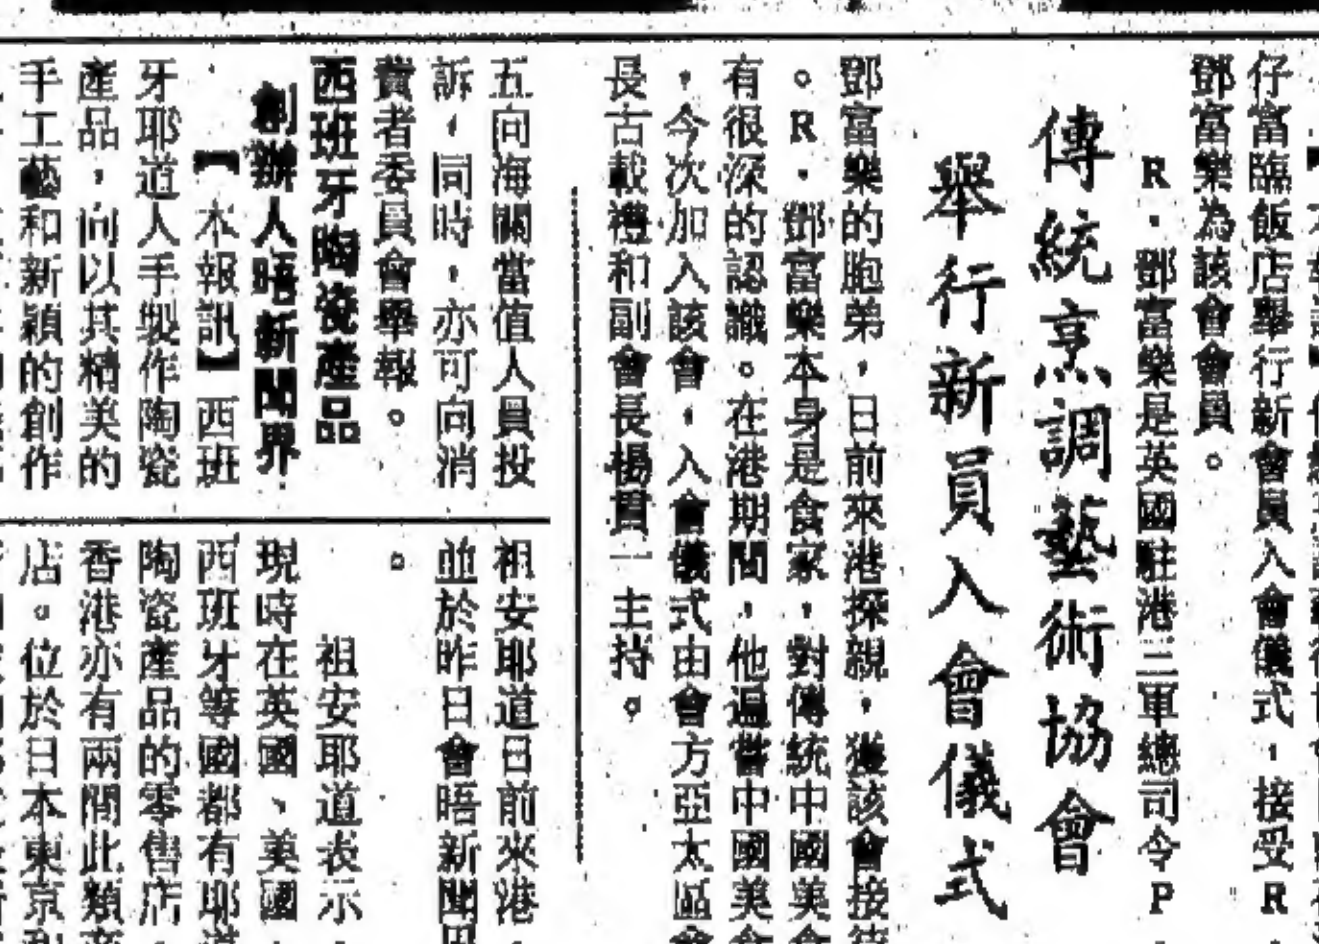 仔富臨飯店舉行新會員入會儀式，接受R
鄧富樂為該會會員。
傳統烹調藝術協會
舉行新員入會儀式
R．鄧富樂是英國駐港三軍總司令P
鄧富樂的胞弟，日前來港探親，獲該會接
。R．鄧富樂本身是食家，對傳統中國美食
有很深的認識。在港期間，他遍嘗中國美食
，今次加入該會，入會儀式由會方亞太區
長古載禮和副會長楊貫一主持。
五向海關當值人員投
訴，同時，亦可向消
費者委員會舉報。
西班牙陶瓷產品
創辦人晤新聞界
【本報訊】西班
牙耶道人手製作陶瓷
產品，向以其精美的
手工藝和新穎的創作
祖安耶道日前來港，
並於昨日會晤新聞界
。
祖安耶道表示，
現時在英國、美國、
西班牙等國都有耶道
陶瓷產品的零售店，
香港亦有兩間此類
店。位於日本東京